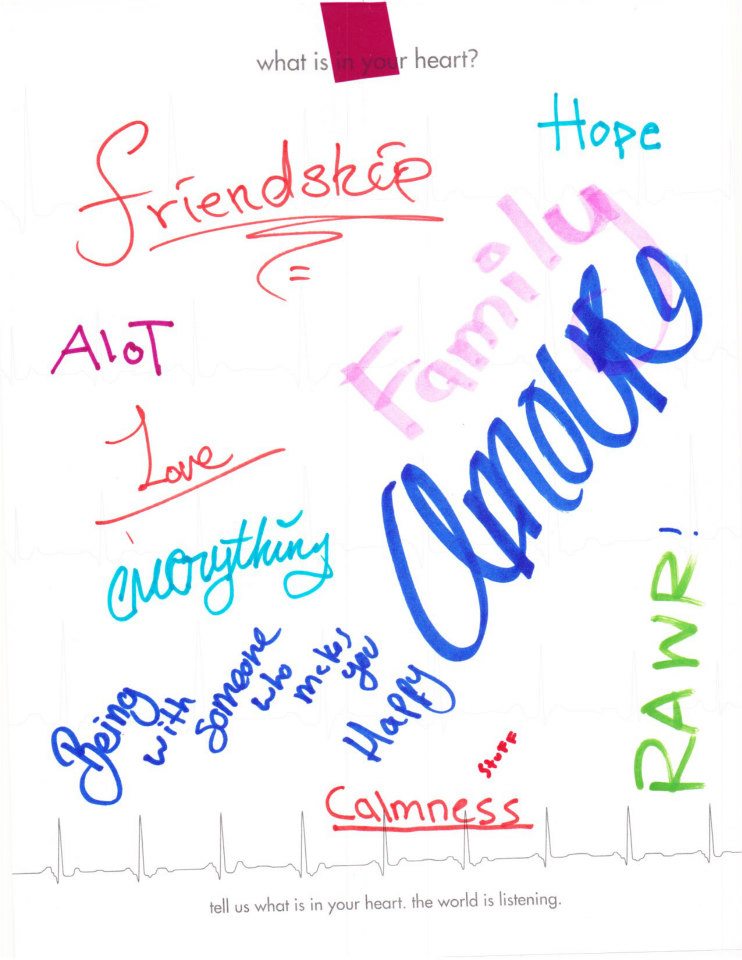 what is in your heart?
Hope
Friendship
=
Family
Amour
AloT
Love
everything
RAWR!
Being
with
someone
who
makes
you
Happy
STUFF
Calmness
tell us what is in your heart. the world is listening.